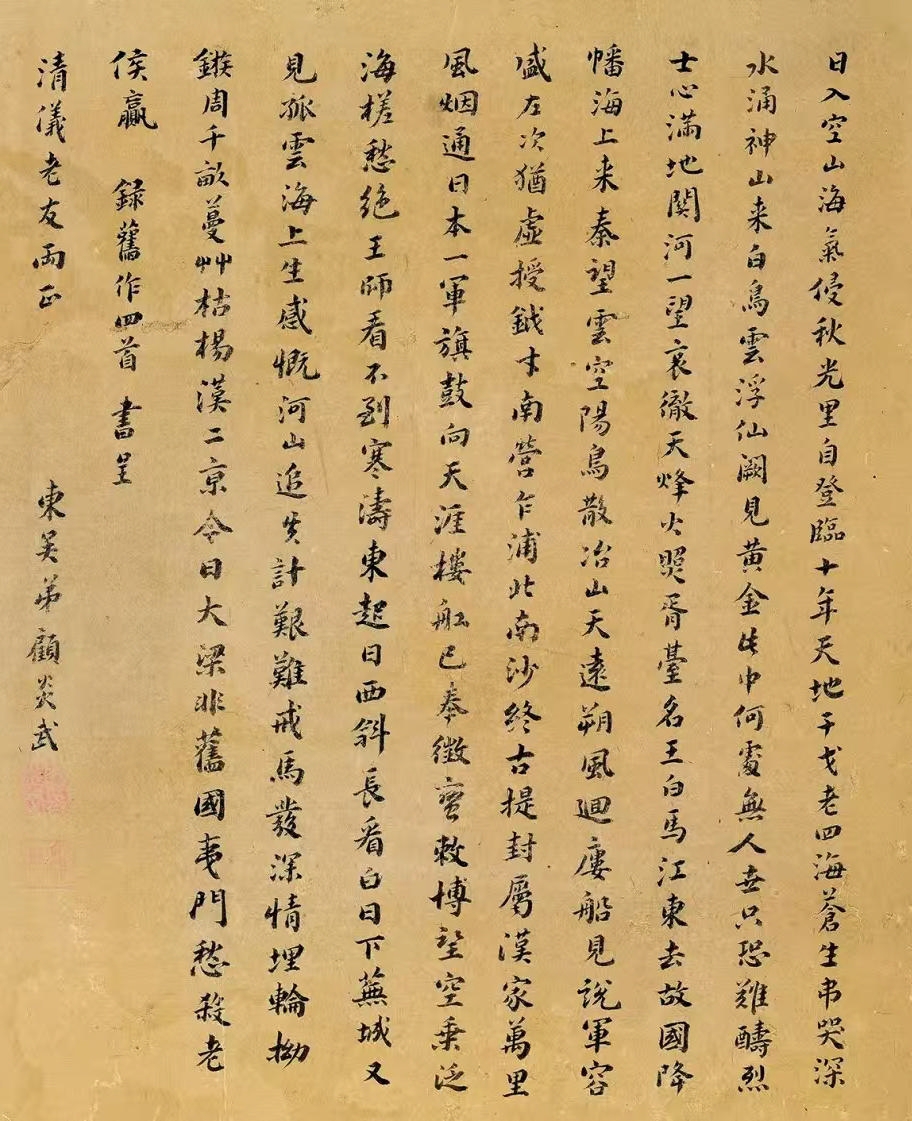 日入空山海氣侵秋光里自登臨十年天地干戈老四海蒼生弔哭深
水涌神山来白鳥雲浮仙闕見黄金此中何處無人世只恐難酬烈
士心滿地関河一望哀徹天烽火照胥臺名王白馬江東去故國降
幡海上来秦望雲空陽鳥散冶山天遠朔風迴廔船見説軍容
盛左次猶虚授鉞才南營乍浦北南沙終古提封屬漢家萬里
風烟通日本一軍旗鼓向天涯樓舡已奉徵蠻敕博望空乗泛
海槎愁絶王師看不到寒濤東起日西斜長看白日下蕪城又
見孤雲海上生感慨河山追失計艱難戎馬發深情埋輪拗
鏃周千畝蔓艸枯楊漢二京今日大梁非舊國夷門愁殺老
侯嬴 録舊作四首 書呈
清儀老友両正 東吴弟顧炎武